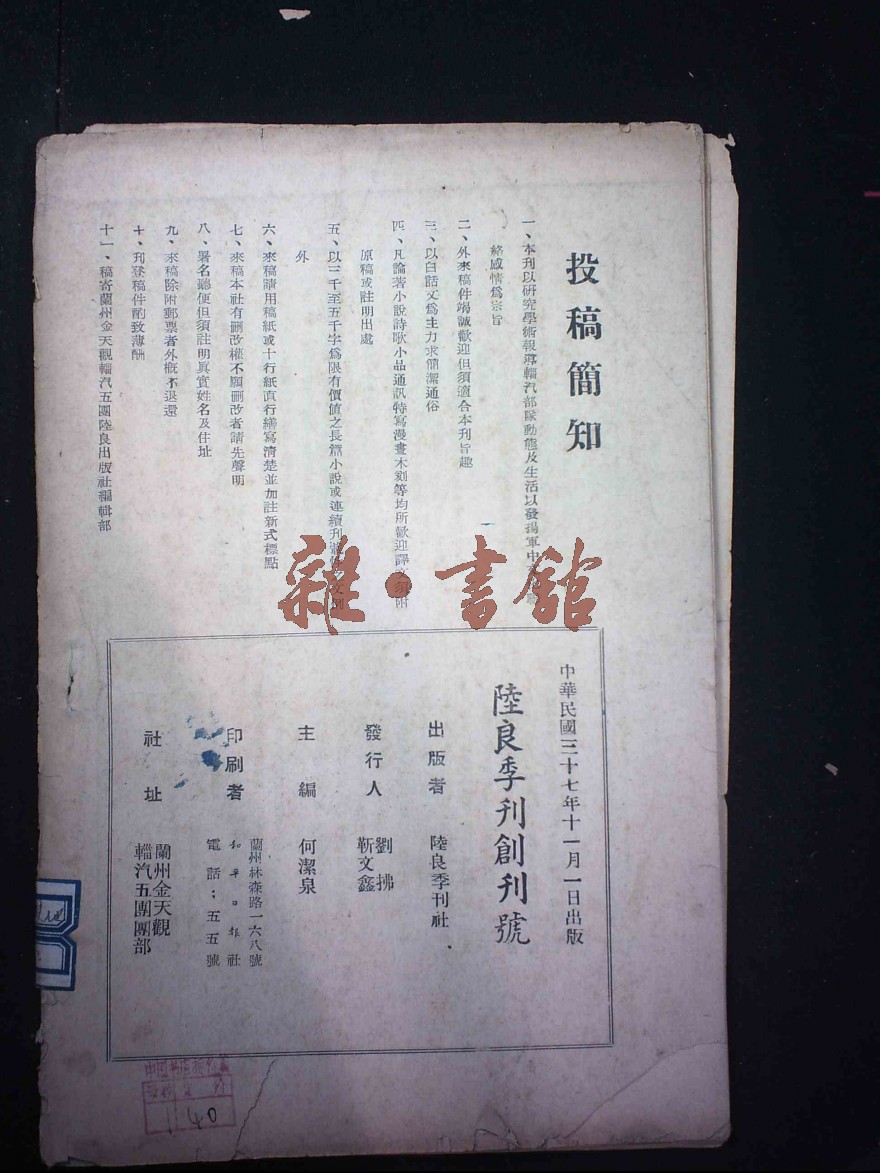 投稿簡知
一、本刊以研究學術報導輜汽部隊動態及生活以發揚軍中
絡感情爲宗旨
二、外來稿件竭誠歡迎但須適合本刊旨趣
三、以白話文爲主力求簡潔通俗
四、凡論著小說詩歌小品通訊特寫漫畫木刻等均所歡迎譯文須附
原稿或註明出處
五、以三千至五千字爲限有價値之長篇小說或連續刊
外
六、來稿請用稿紙或十行紙直行繕寫清楚並加註新式標點
七、來稿本社有刪改權不願刪改者請先聲明
八、署名聽便但須註明眞實姓名及住址
九、來稿除附郵票者外概不退還
十、刊登稿件酌致薄酬
十一、稿寄蘭州金天觀輜汽五團陸良出版社編輯部
雜·書館
中華民國三十七年十一月一日出版
陸良季刊創刊號
出版者 陸良季刊社
發行人 劉拂
靳文鑫
主編 何潔泉
印刷者 蘭州林森路一六八號
和平日報社
電話：五五號
社址 蘭州金天觀
輜汽五團團部
40